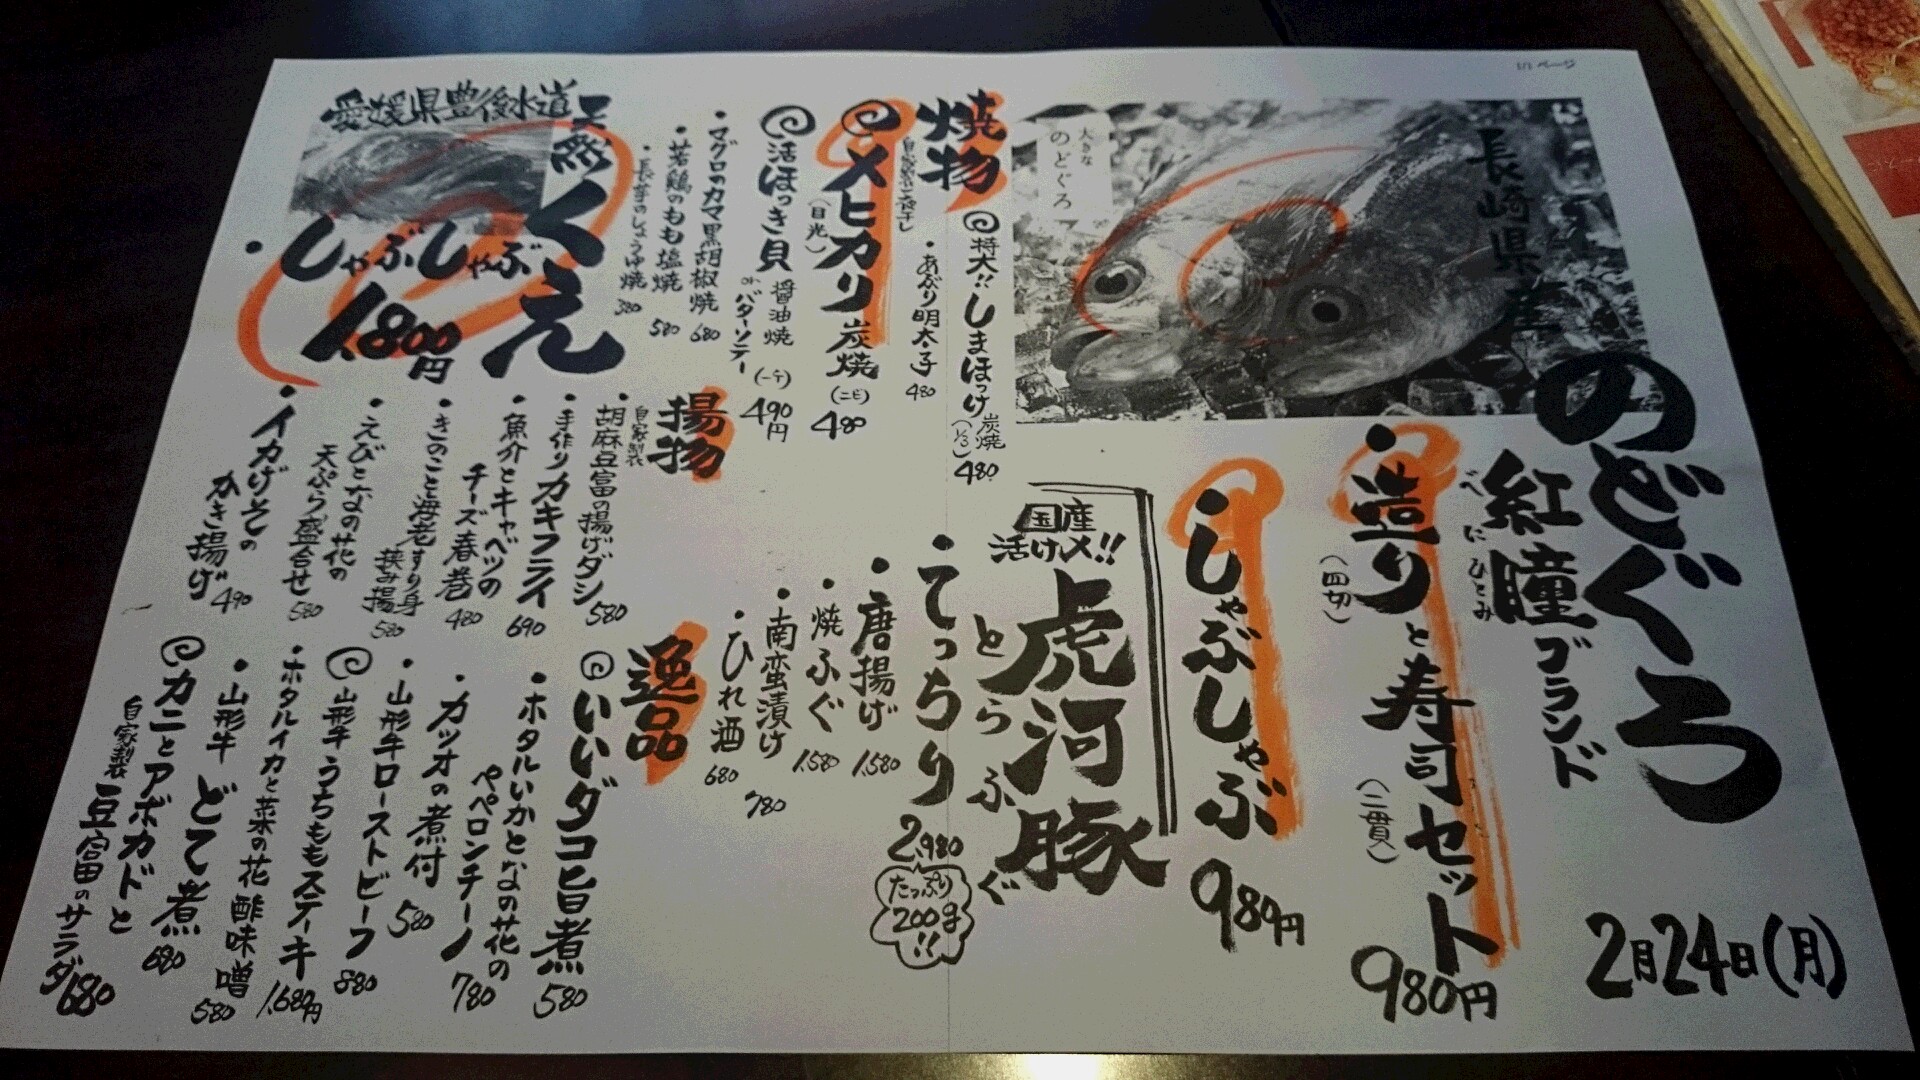 1/1 ページ
大きな
のどぐろ
長崎県産
のどぐろ
紅瞳ブランド
べにひとみ
・造りと寿司セット
(四切)
(二貫)
980円
・しゃぶしゃぶ
980円
2月24日(月)
国産
活け〆!!
虎河豚
とらふぐ
・てっちり
2,980
たっぷり
200g
!!
・唐揚げ 1,580
・焼ふぐ 1,580
・南蛮漬け 780
・ひれ酒 680
焼物
特大!!しまほっけ 炭焼 (1/3) 480
・あぶり明太子 480
メヒカリ 炭焼 (二ビ) 480
(目光)
活ほっき貝 醤油焼 (一ケ) 490円
or バターソテー
・マグロのカマ黒胡椒焼 680
・若鶏のもも塩焼 580
・長芋のしょうゆ焼 380
愛媛県豊後水道
天然くえ
・しゃぶしゃぶ
1,800円
揚物
自家製
・胡麻豆富の揚げダシ 580
・手作りカキフライ 690
・魚介とキャベツの
チーズ春巻 480
・きのこと海老すり身
挟み揚 580
・えびとなの花の
天ぷら盛合せ 580
・イカげその
かき揚げ 490
逸品
いいダコ旨煮 580
・ホタルいかとなの花の
ペペロンチーノ 780
・カツオの煮付 580
・山形牛ローストビーフ 880
山形牛うちももステーキ 1,680円
・ホタルイカと菜の花酢味噌 580
・山形牛どて煮 680
カニとアボカドと
自家製豆富のサラダ 680